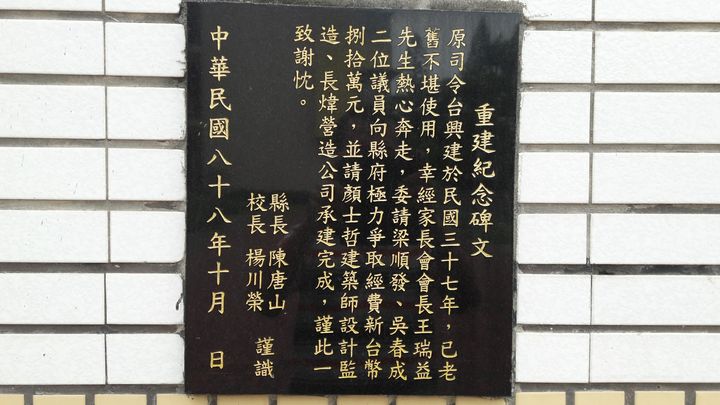 重建紀念碑文
原司令台興建於民國三十七年，已老
舊不堪使用，幸經家長會會長王瑞益
先生熱心奔走，委請梁順發、吳春成
二位議員向縣府極力爭取經費新台幣
捌拾萬元，並請顏士哲建築師設計監
造、長煒營造公司承建完成，謹此一
致謝忱。
縣長 陳唐山
校長 楊川榮 謹識
中華民國八十八年十月 日